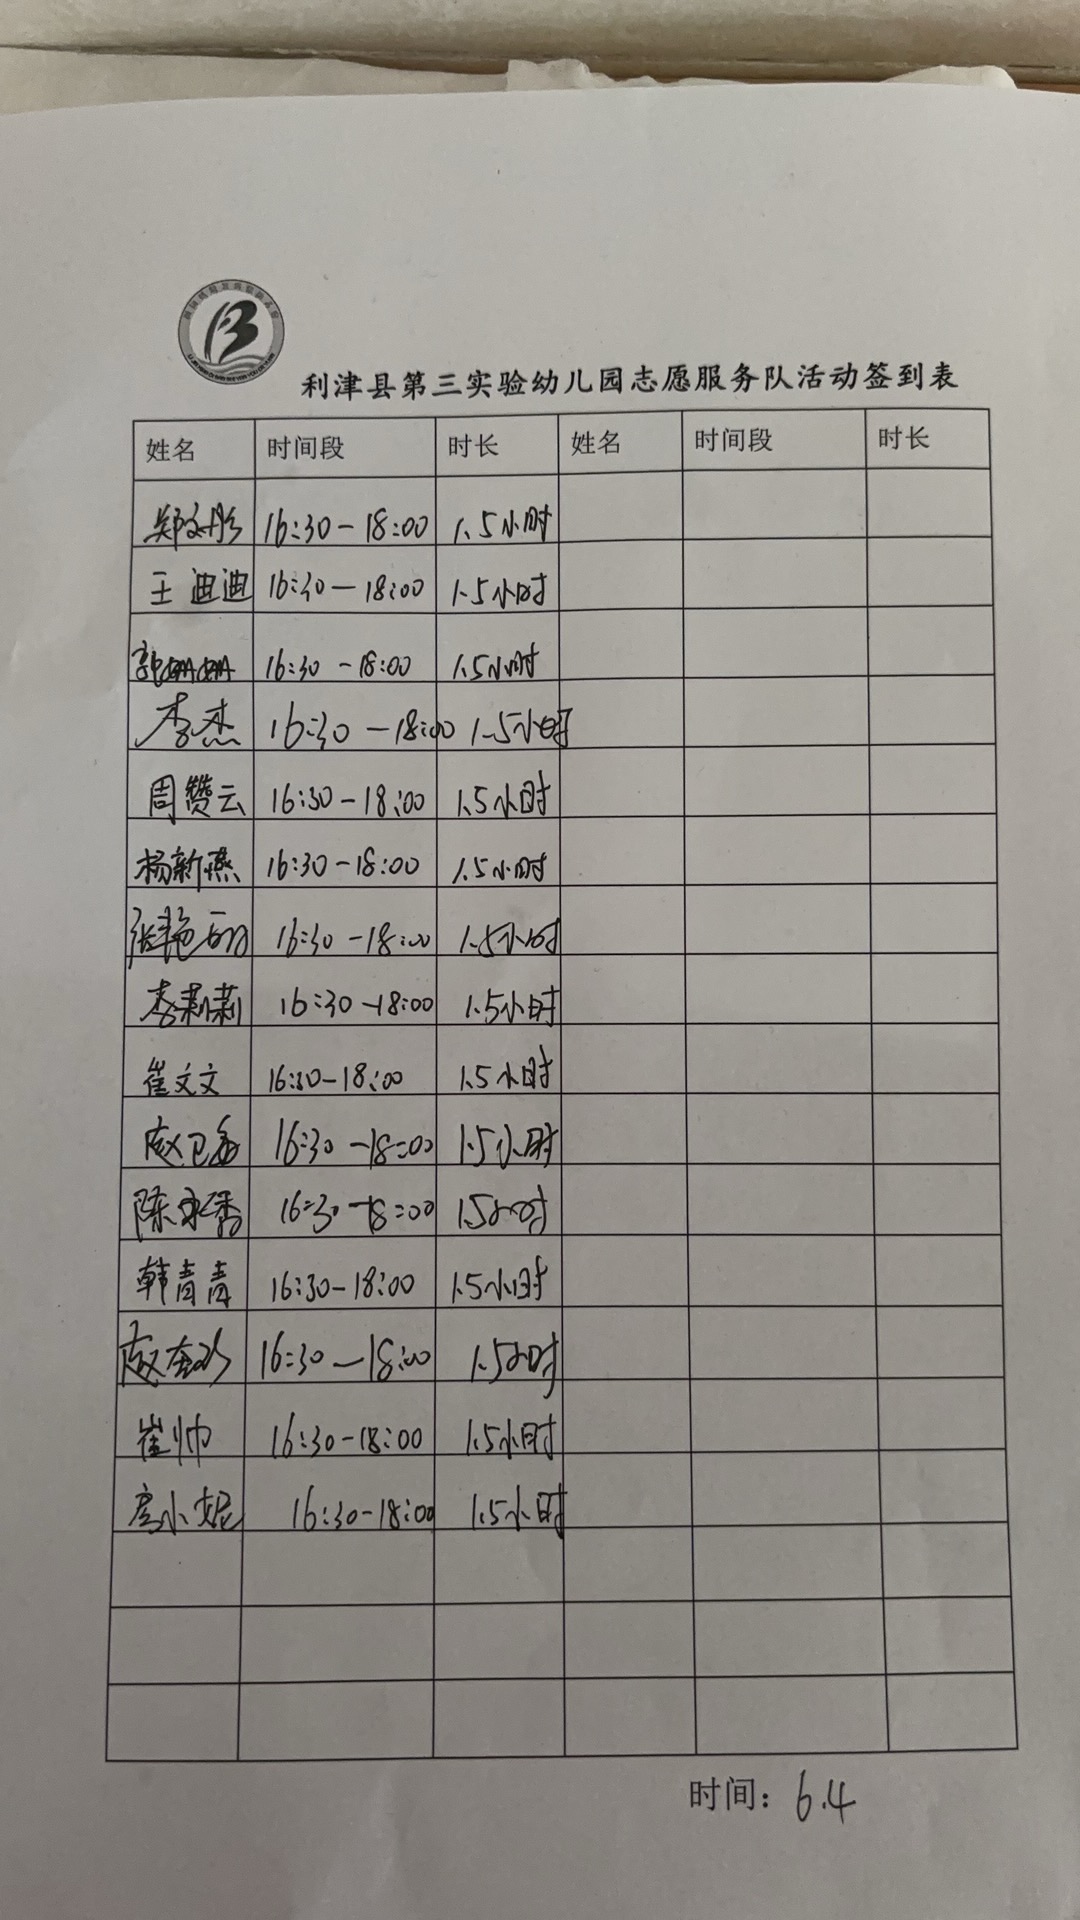 利津县第三实验幼儿园志愿服务队活动签到表
姓名 时间段 时长 姓名 时间段 时长
郑文彤 16:30-18:00 1.5小时
王迪迪 16:30-18:00 1.5小时
郭姗姗 16:30-18:00 1.5小时
李杰 16:30-18:00 1.5小时
周赞云 16:30-18:00 1.5小时
杨新燕 16:30-18:00 1.5小时
张艳丽 16:30-18:00 1.5小时
李莉莉 16:30-18:00 1.5小时
崔文文 16:30-18:00 1.5小时
赵卫 16:30-18:00 1.5小时
陈永秀 16:30-18:00 1.5小时
韩青青 16:30-18:00 1.5小时
赵 16:30-18:00 1.5小时
崔帅 16:30-18:00 1.5小时
房小妮 16:30-18:00 1.5小时
时间：6.4